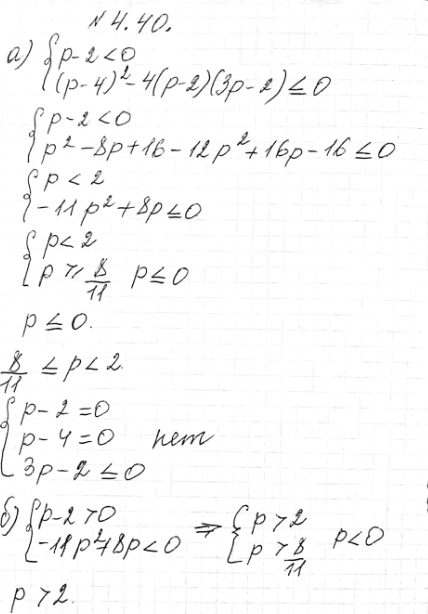 № 4.40.
а) { p - 2 < 0
(p - 4)² - 4(p - 2)(3p - 2) ≤ 0
{ p - 2 < 0
p² - 8p + 16 - 12p² + 16p - 16 ≤ 0
{ p < 2
-11p² + 8p ≤ 0
{ p < 2
p ≥ 8/11 p ≤ 0
p ≤ 0.
8/11 ≤ p < 2.
{ p - 2 = 0
p - 4 = 0 нет
3p - 2 ≤ 0
б) { p - 2 > 0 ⇒ { p > 2
-11p² + 8p < 0 p > 8/11 p < 0
p > 2.